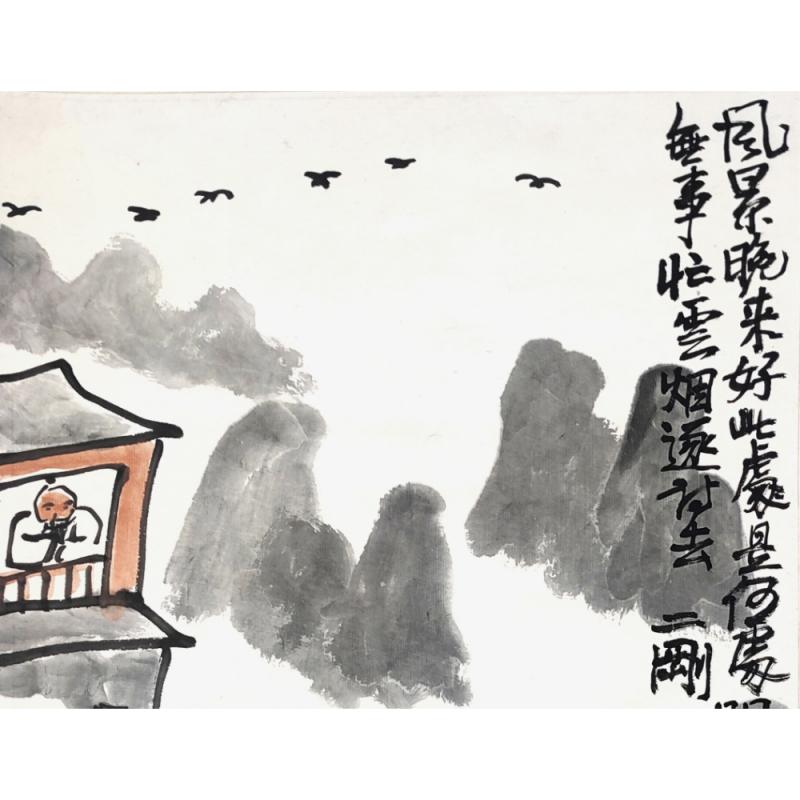 風景晚来好此處是何處
無事忙雲烟逐去 二剛